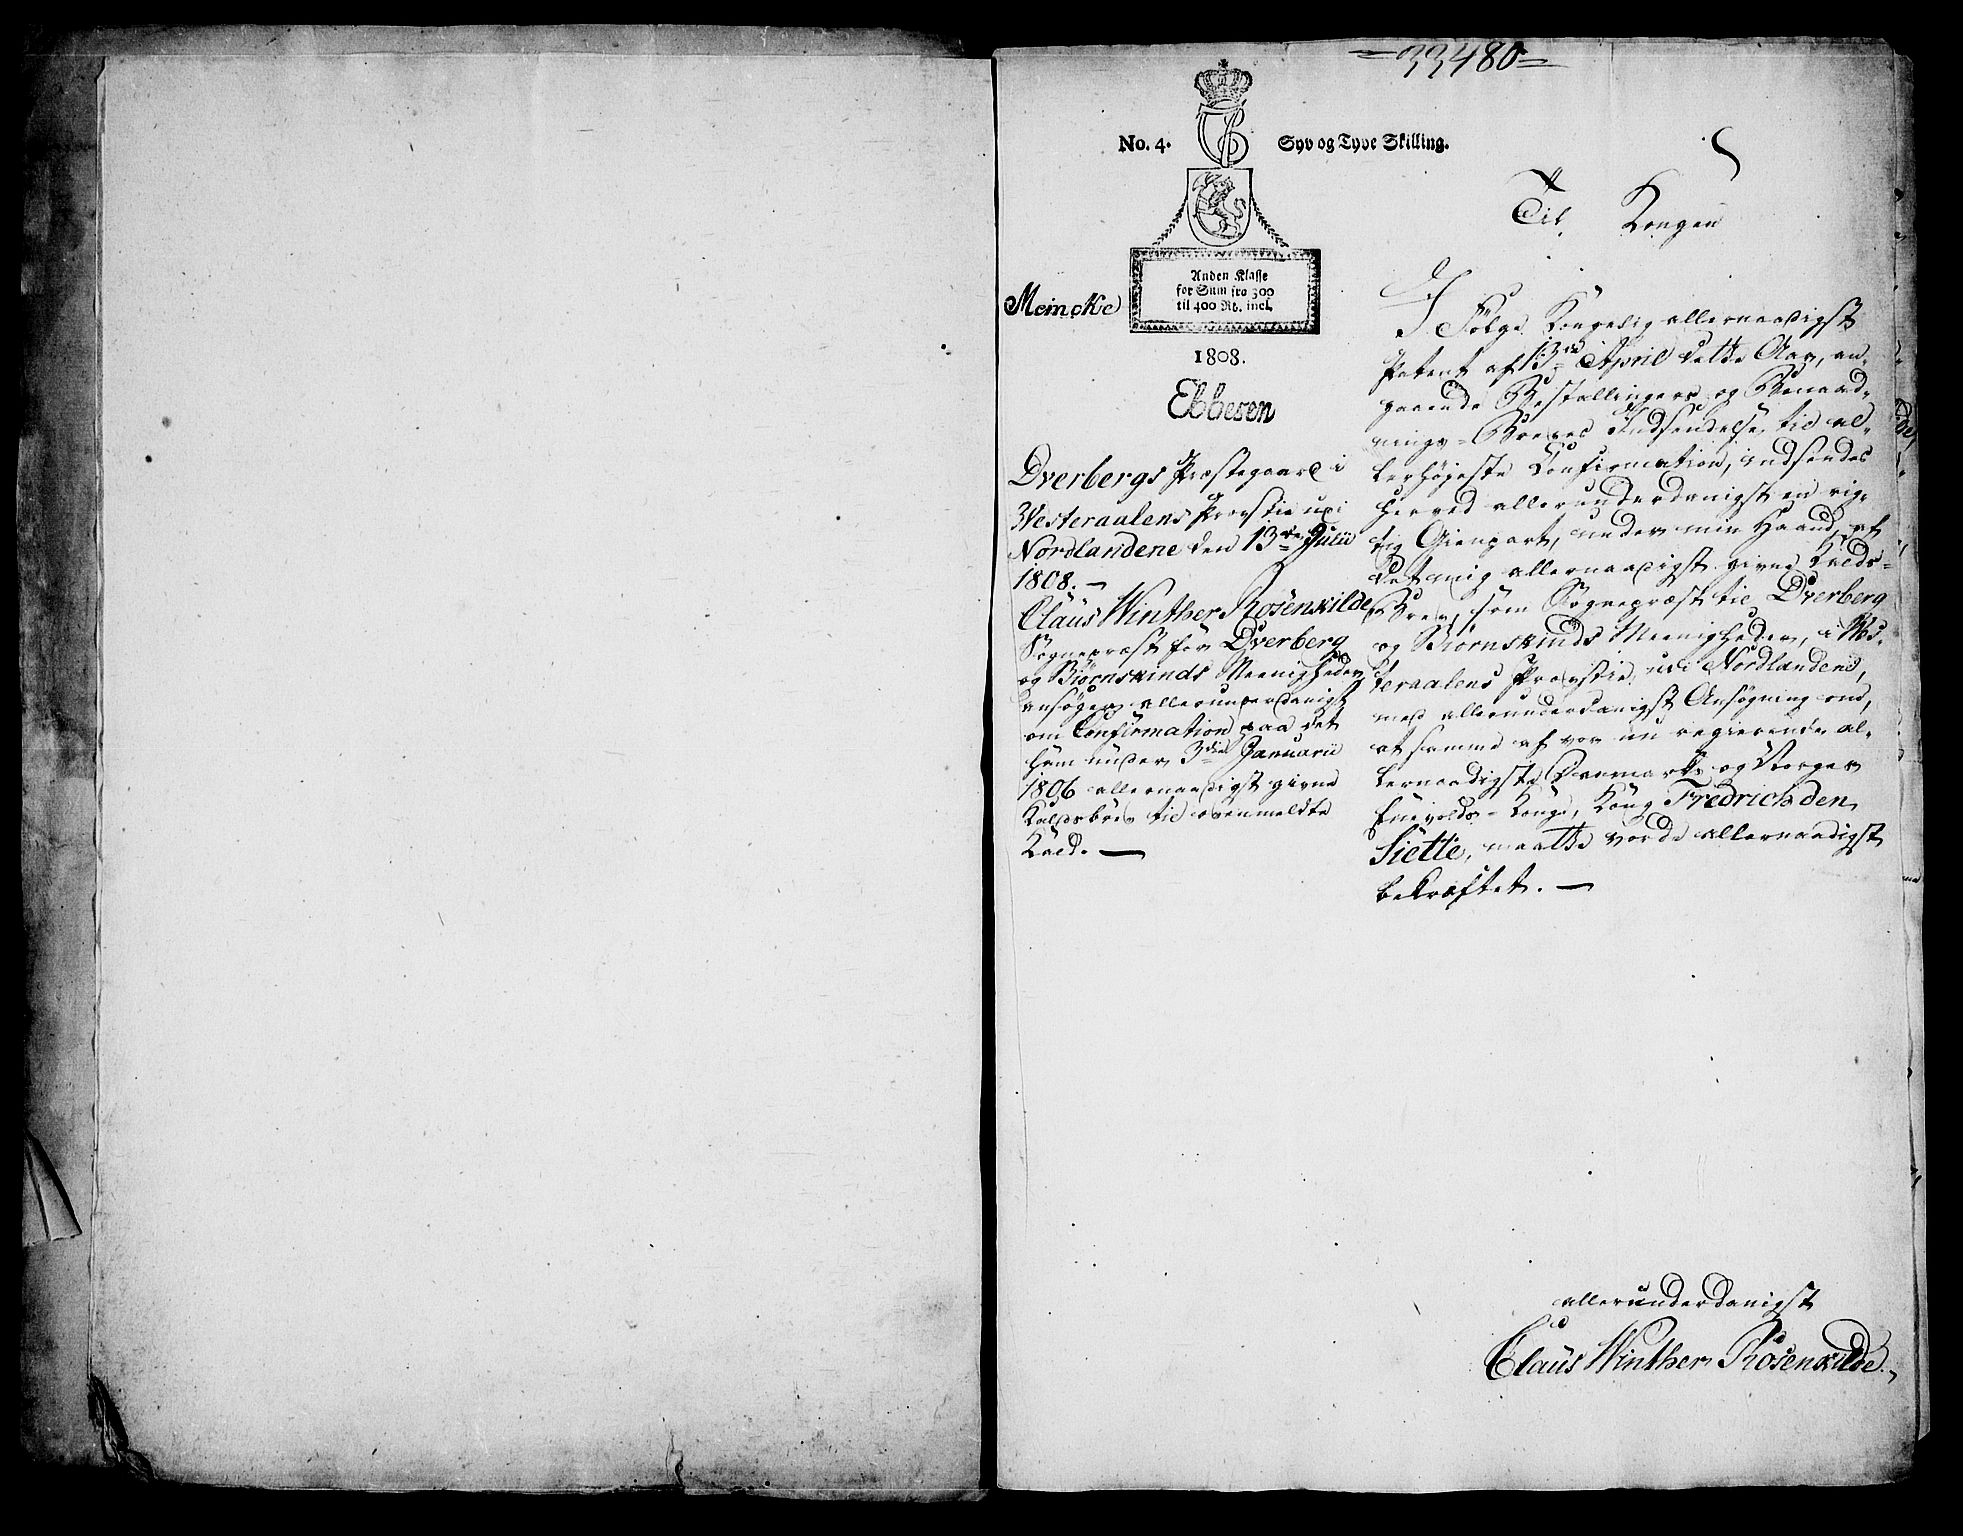 =33480=
No. 4. Syv og Tyve Skilling.
Anden Klasse
for Sum fra 300
til 400 Rd. incl.
Meincke
1808.
Ebbesen
Dverbergs Præstegaard i
Westeraalens Provstie udi
Nordlandene den 13de Julii
1808. —
Claus Winther Rosenkilde
Sognepræst for Dverberg
og Biørnskinds Meenigheder
ansøger allerunderdanigst
om Confirmation paa det
ham under 3die Januarii
1806 allernaadigst givne
Kaldsbrev til ovenmeldte
Kald. —
Til Kongen
I Følge Kongelig allernaadigst
Patent af 13de April dette Aar, an-
gaaende Bestallingers og Benaad-
nings-Breves Indsendelse til al-
lerhøjeste Confirmation, indsendes
herved allerunderdanigst en rig-
tig Gienpart, under min Haand, af
det mig allernaadigst givne Kalds-
Brev, som Sognepræst til Dverberg
og Biørnskinds Meenigheder, i Wes-
teraalens Provstie udi Nordlandene,
med allerunderdanigst Ansøgning om,
at samme af vor nu regierende al-
lernaadigste Danmarks og Norges
Enevolds-Konge, Kong Fredrich den
Siette, maatte vorde allernaadigst
bekræftet. —
allerunderdanigst
Claus Winther Rosenkilde.